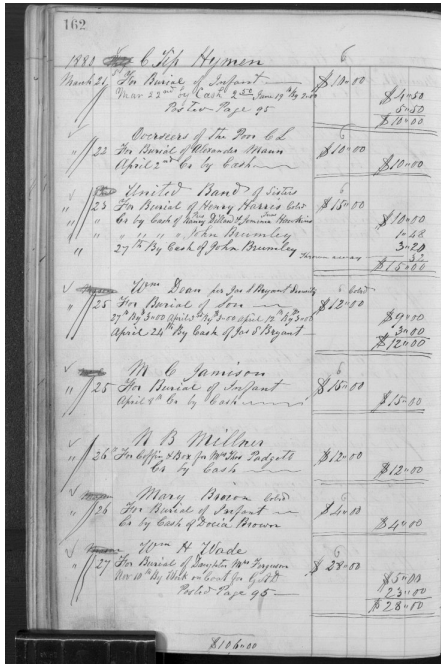 162
1880 C Tip Hymen 6
March 21 For Burial of Infant $10"00
Mar 22nd By Cash 2.50 June 19th By 2.00 $4"50
Posted Page 95 5"50
$10"00
Overseers of the Poor C L 6
" 22 For Burial of Alexander Mann $10"00
April 2nd Cr by Cash $10"00
United Band of Sisters 6
" 23 For Burial of Henry Harris Cold $15"00
" Cr by Cash of Nancy Dillard & Jemima Hawkins $10"00
" " " " " John Brumley 1"48
" 27th By Cash of John Brumley 3"20
away 32
$15"00
Wm Dean for Jos S Bryant 6 Cold
" 25 For Burial of Son $12"00
27th By $3=00 April 3rd By $3=00 April 12th By $3=00 $9"00
April 24th By Cash of Jos S Bryant "3"00
$12"00
M C Jamison 6
" 25 For Burial of Infant $15"00
April 8th Cr by Cash $15"00
N B Millner 6
" 26th For Coffin & Box for Mrs Padgett $12"00
Cr by Cash $12"00
Mary Brison Cold 6
" 26 For Burial of Infant $4"00
Cr by Cash of Docia Brown $4"00
Wm H Wade 6
" 27 For Burial of Daughter Mrs Ferguson $28"00
Nov 10th By Work on Coat for $5"00
Posted Page 95 23"00
$28"00
$106"00